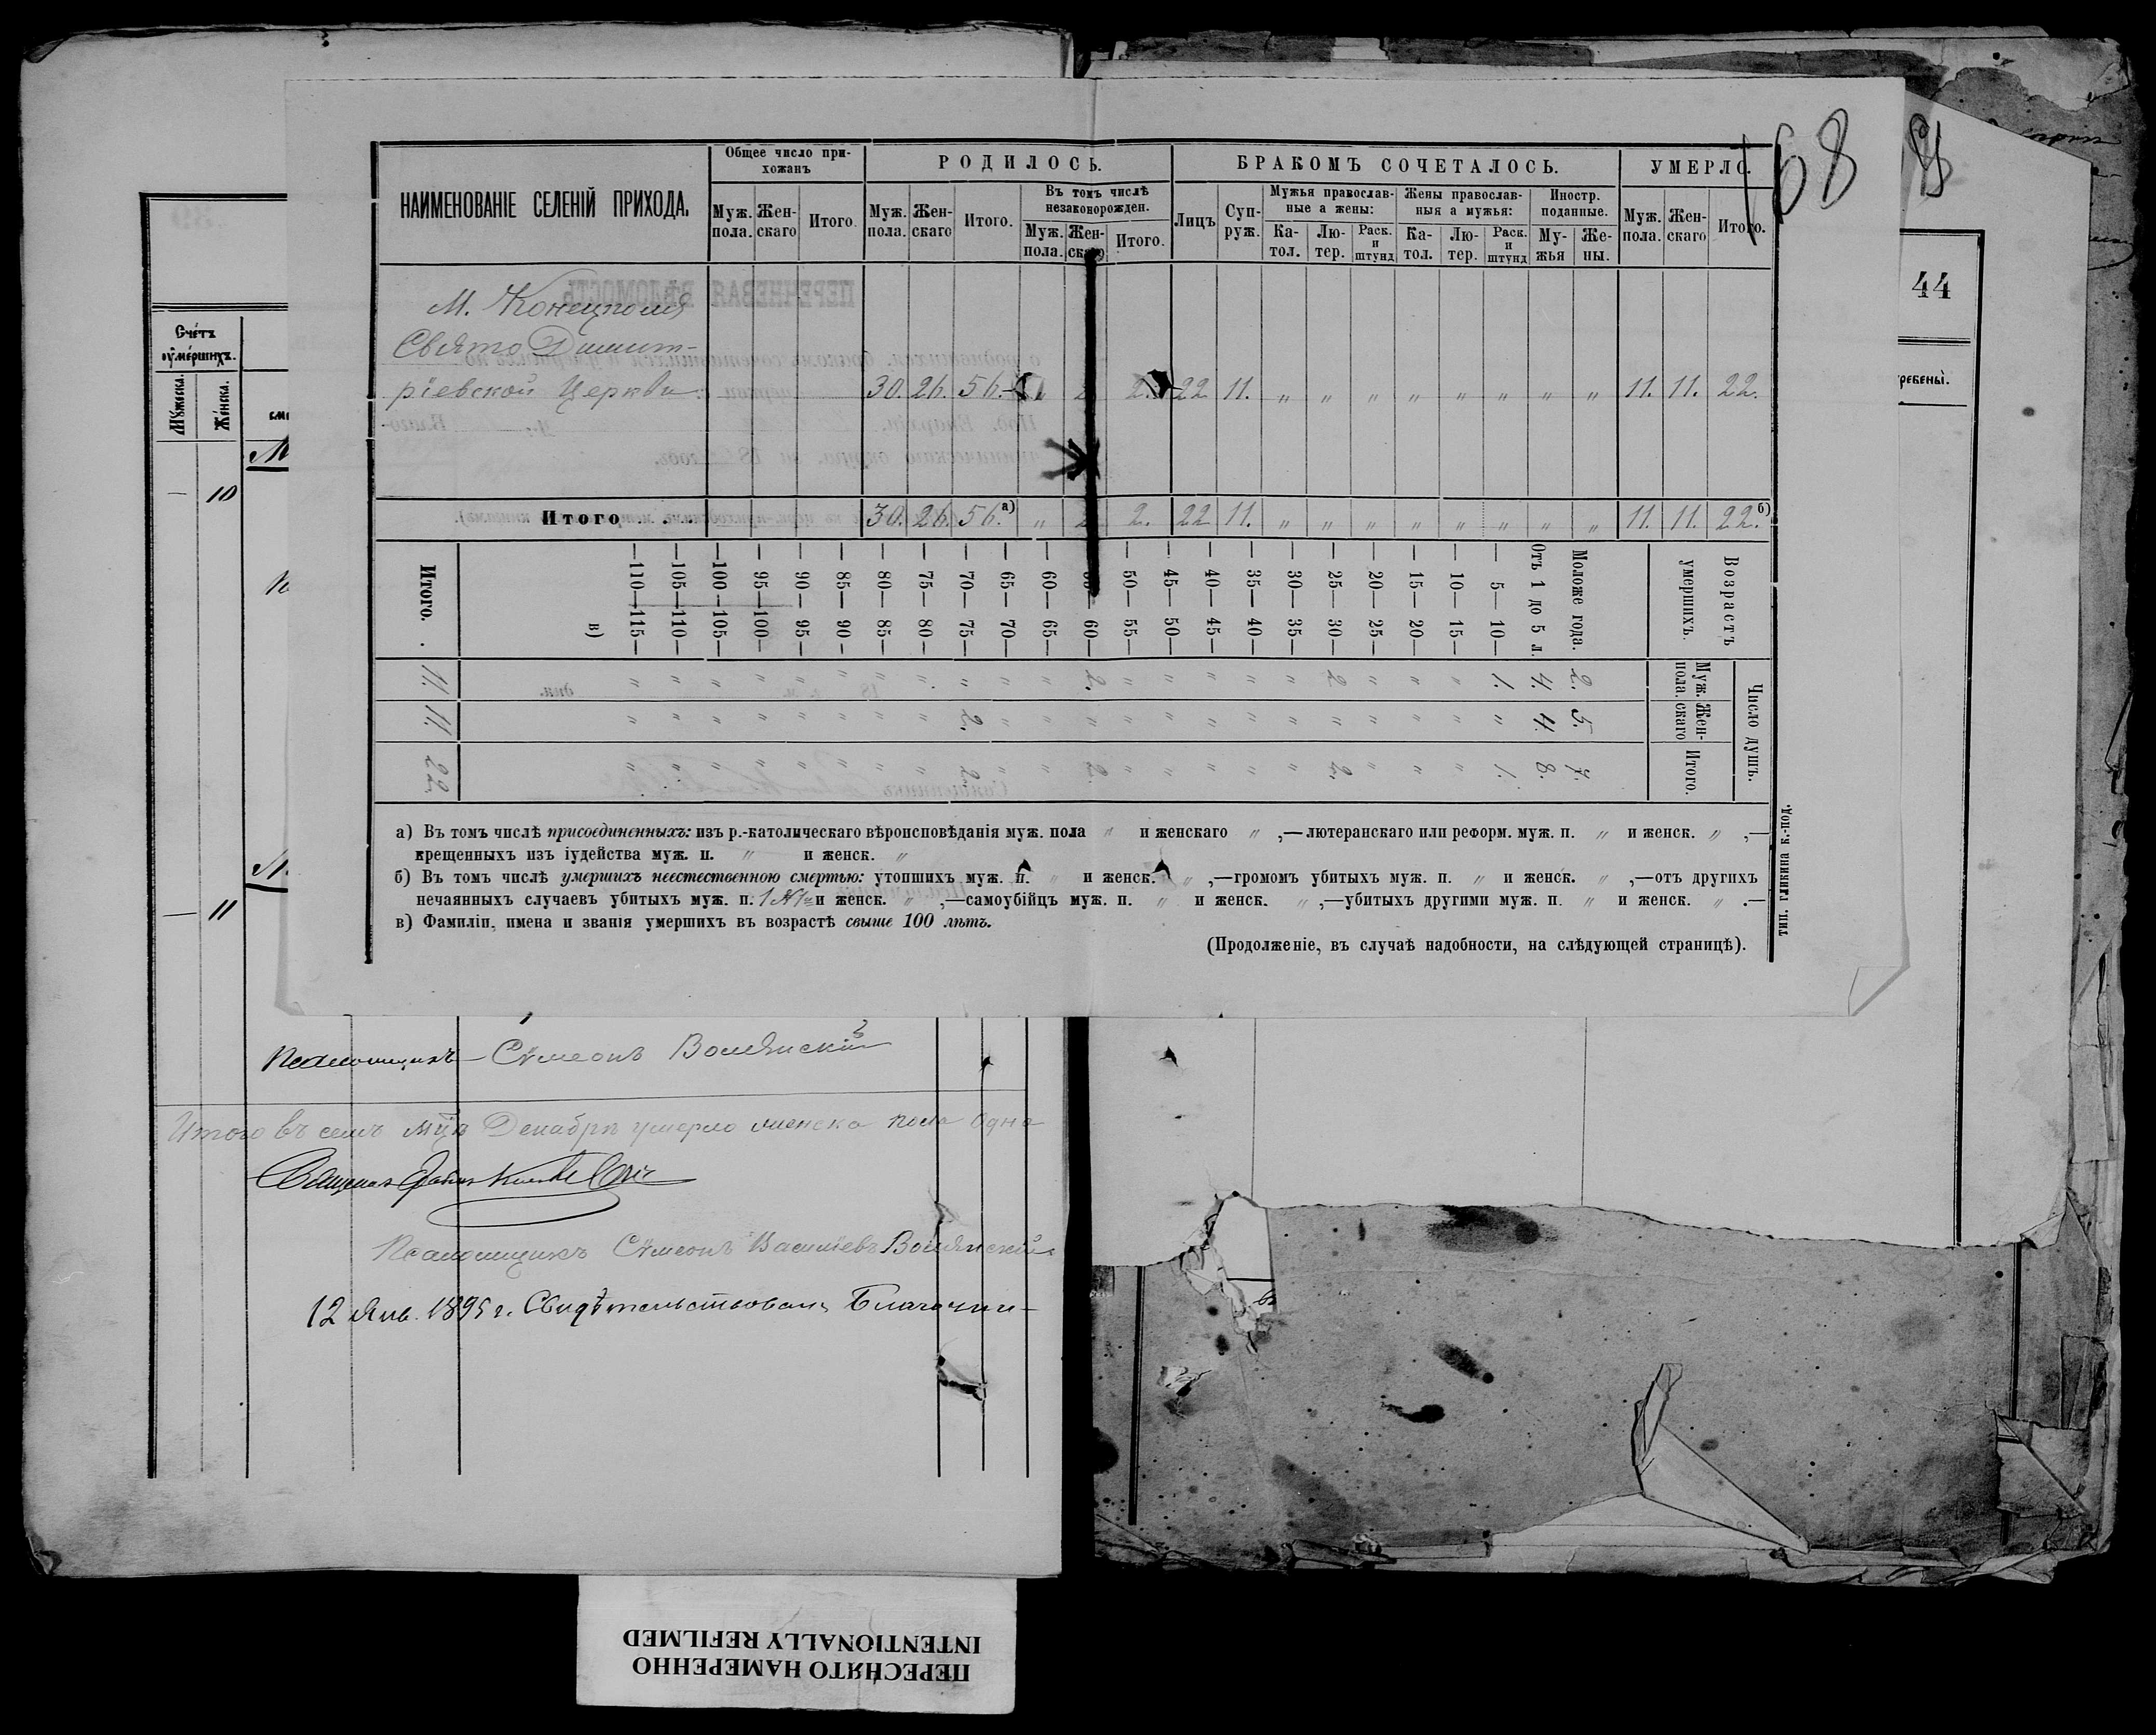 168
НАИМЕНОВАНІЕ СЕЛЕНІЙ ПРИХОДА.
Общее число при-
хожанъ
Муж. пола. Жен- скаго Итого.
РОДИЛОСЬ.
Муж. пола. Жен- скаго Итого.
Въ томъ числѣ
незаконорожден.
Муж. пола. Жен- скаго Итого.
БРАКОМЪ СОЧЕТАЛОСЬ.
Лицъ Суп- руж.
Мужья православ-
ные а жены:
Ка- тол. Лю- тер. Раск. и штунд
Жены православ-
ныя а мужья:
Ка- тол. Лю- тер. Раск. и штунд
Иностр.
поданные.
Му- жья Же- ны.
УМЕРЛО.
Муж. пола. Жен- скаго Итого.
М. Конецполя
Свято Димит-
ріевской Церкви 30. 26. 56. „ 2. 2. 22 11. „ „ „ „ „ „ „ „ 11. 11. 22.
Итого . . . 30. 26. 56. а) „ 2. 2. 22 11. „ „ „ „ „ „ „ „ 11. 11. 22. б)
Возрастъ умершихъ. Число душъ. Муж. пола. Жен- скаго Итого.
Моложе года. 2. 5. 7.
Отъ 1 до 5 л. 4. 4. 8.
— 5— 10— 1. „ 1.
— 10— 15— „ „ „
— 15— 20— „ „ „
— 20— 25— „ „ „
— 25— 30— 2 „ 2.
— 30— 35— „ „ „
— 35— 40— „ „ „
— 40— 45— „ „ „
— 45— 50— „ „ „
— 50— 55— „ „ „
60— 2. „ 2.
— 60— 65— „ „ „
— 65— 70— „ „ „
— 70— 75— „ 2. 2.
— 75— 80— „ „ „
— 80— 85— „ „ „
— 85— 90 — „ „ „
— 90— 95 — „ „ „
— 95—100— „ „ „
—100—105— „ „ „
—105—110— „ „ „
—110—115— „ „ „
в)
Итого. . 11. 11. 22.
а) Въ томъ числѣ присоединенныхъ: изъ р.-католическаго вѣроисповѣданія муж. пола „ и женскаго „ ,—лютеранскаго или реформ. муж. п. „ и женск. „ ,—
крещенныхъ изъ іудейства муж. п. „ и женск. „
б) Въ томъ числѣ умершихъ неестественною смертью: утопшихъ муж. п. „ и женск. „ ,—громомъ убитыхъ муж. п. „ и женск. „ ,—отъ другихъ
нечаянныхъ случаевъ убитыхъ муж. п. 1 и женск. „ ,—самоубійцъ муж. п. „ и женск. „ ,—убитыхъ другими муж. п. „ и женск. „ .—
в) Фамиліи, имена и званія умершихъ въ возрастѣ свыше 100 лѣтъ.
(Продолженіе, въ случаѣ надобности, на слѣдующей страницѣ).
тип. гликина к.-под.
44
Счетъ
оумершихъ.
Мужеска. Женска.
— 10
— 11
Псаломщикъ Сѵмеонъ Волянскій
Итого въ семъ мцѣ Декабрѣ умерло женска пола одна
Псаломщикъ Сѵмеонъ Василіевъ Волянскій
12 Янв. 1895 г. Свидѣтельствовалъ Благочин-
INTENTIONALLY REFILMED
ПЕРЕСНЯТО НАМЕРЕННО